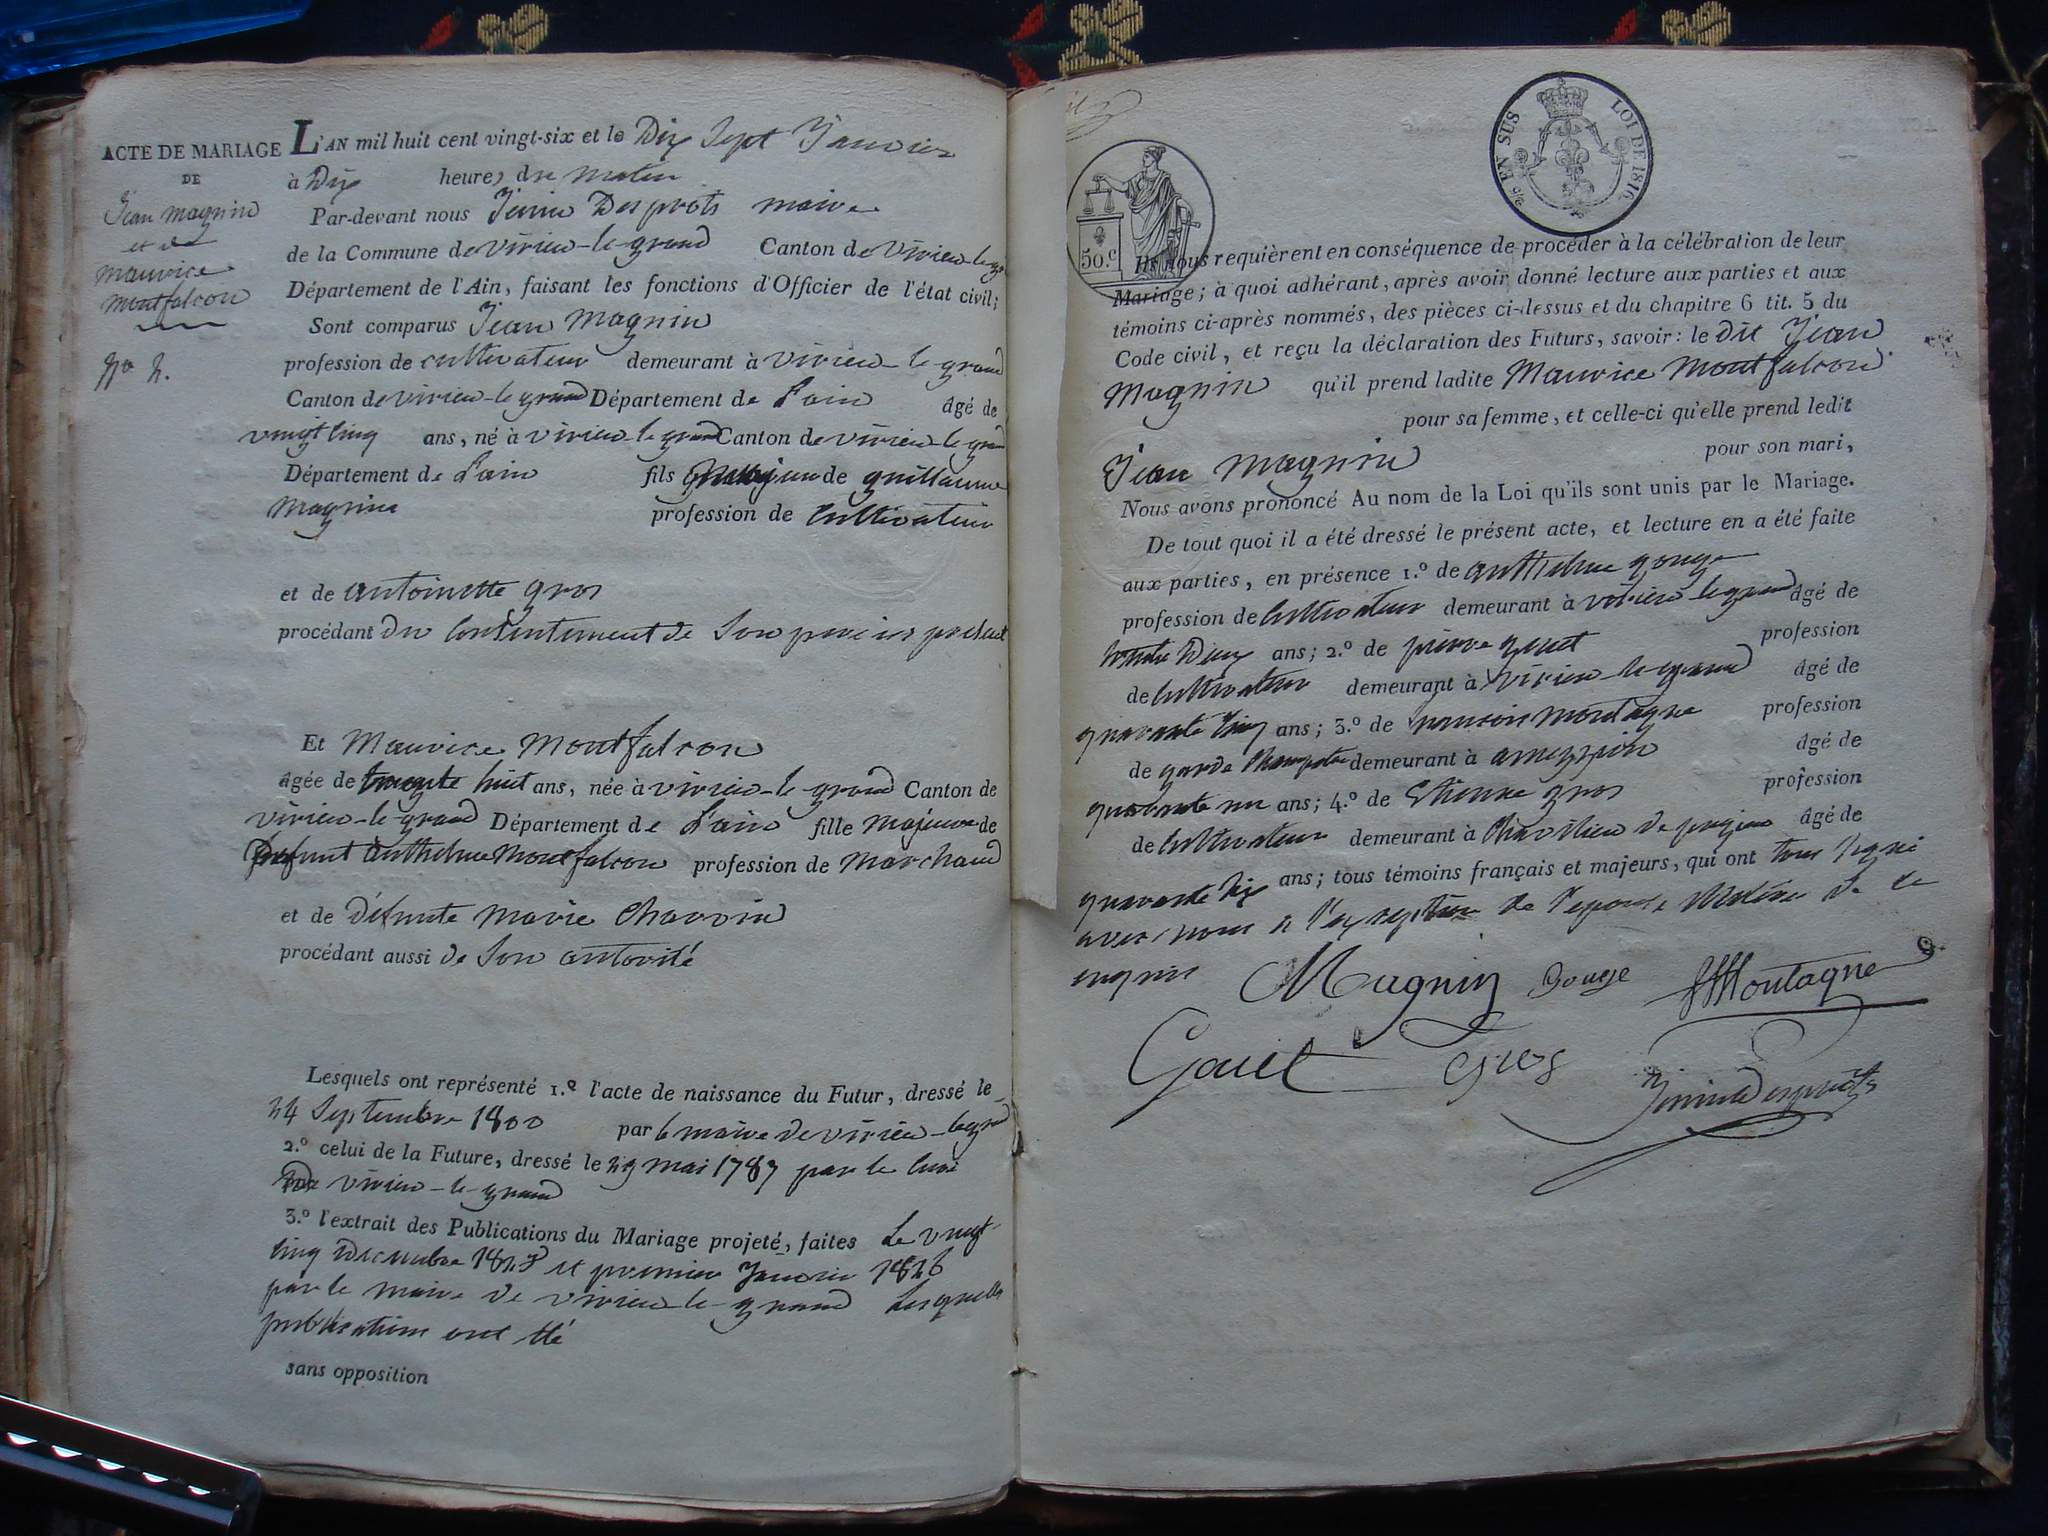 ACTE DE MARIAGE
DE
Jean Magnin
et de
Maurice
Montfalcon
N° 2.
L'AN mil huit cent vingt-six et le Dix Sept Janvier
à Dix heures du matin
Par-devant nous Desprots maire
de la Commune de virieu-le-grand Canton de virieu-le-gr
Département de l'Ain, faisant les fonctions d'Officier de l'état civil;
Sont comparus Jean Magnin
profession de cultivateur demeurant à virieu-le-grand
Canton de virieu-le-grand Département de L'ain âgé de
vingt cinq ans, né à virieu-le-grand Canton de virieu-le-grand
Département de L'ain fils majeur de guillaume
Magnin profession de Cultivateur
et de antoinette gros
procédant du Consentement de Son père ici présent
Et Maurice Montfalcon
âgée de trente huit ans, née à virieu-le-grand Canton de
virieu-le-grand Département de L'ain fille majeure de
Defunt anthelme Montfalcon profession de Marchand
et de Défunte Marie Charvin
procédant aussi de Son autorité
Lesquels ont représenté 1.º l'acte de naissance du Futur, dressé le
24 Septembre 1800 par le maire de virieu-legrand
2.º celui de la Future, dressé le 29 mai 1787 par le curé
de virieu-le-grand
3.º l'extrait des Publications du Mariage projeté, faites Le vingt
cinq Decembre 1825 et premier Janvier 1826
par le maire de virieu-le-grand Lesquelles
publications ont été
sans opposition
50.c
c/e EN SUS LOI DE 1816
Ils nous requièrent en conséquence de procéder à la célébration de leur
Mariage; à quoi adhérant, après avoir donné lecture aux parties et aux
témoins ci-après nommés, des pièces ci-dessus et du chapitre 6 tit. 5 du
Code civil, et reçu la déclaration des Futurs, savoir: le dit Jean
Magnin qu'il prend ladite Maurice Montfalcon
pour sa femme, et celle-ci qu'elle prend ledit
Jean Magnin pour son mari,
Nous avons prononcé Au nom de la Loi qu'ils sont unis par le Mariage.
De tout quoi il a été dressé le présent acte, et lecture en a été faite
aux parties, en présence 1.º de anthelme gouge
profession de Cultivateur demeurant à virieu-legrand âgé de
trente Deux ans; 2.º de pierre gouet profession
de Cultivateur demeurant à virieu-le-grand âgé de
quarante Cinq ans; 3.º de françois montagne profession
de garde Champetre demeurant à ameyzieu âgé de
quarante un ans; 4.º de Etienne gros profession
de Cultivateur demeurant à Chavilieu de pugieu âgé de
quarante Six ans; tous témoins français et majeurs, qui ont tous Signé
avec nous à l'exception de l'epouse de ce
enquise
Magnin Gouge Montagne
Gouet Gros
Desprots